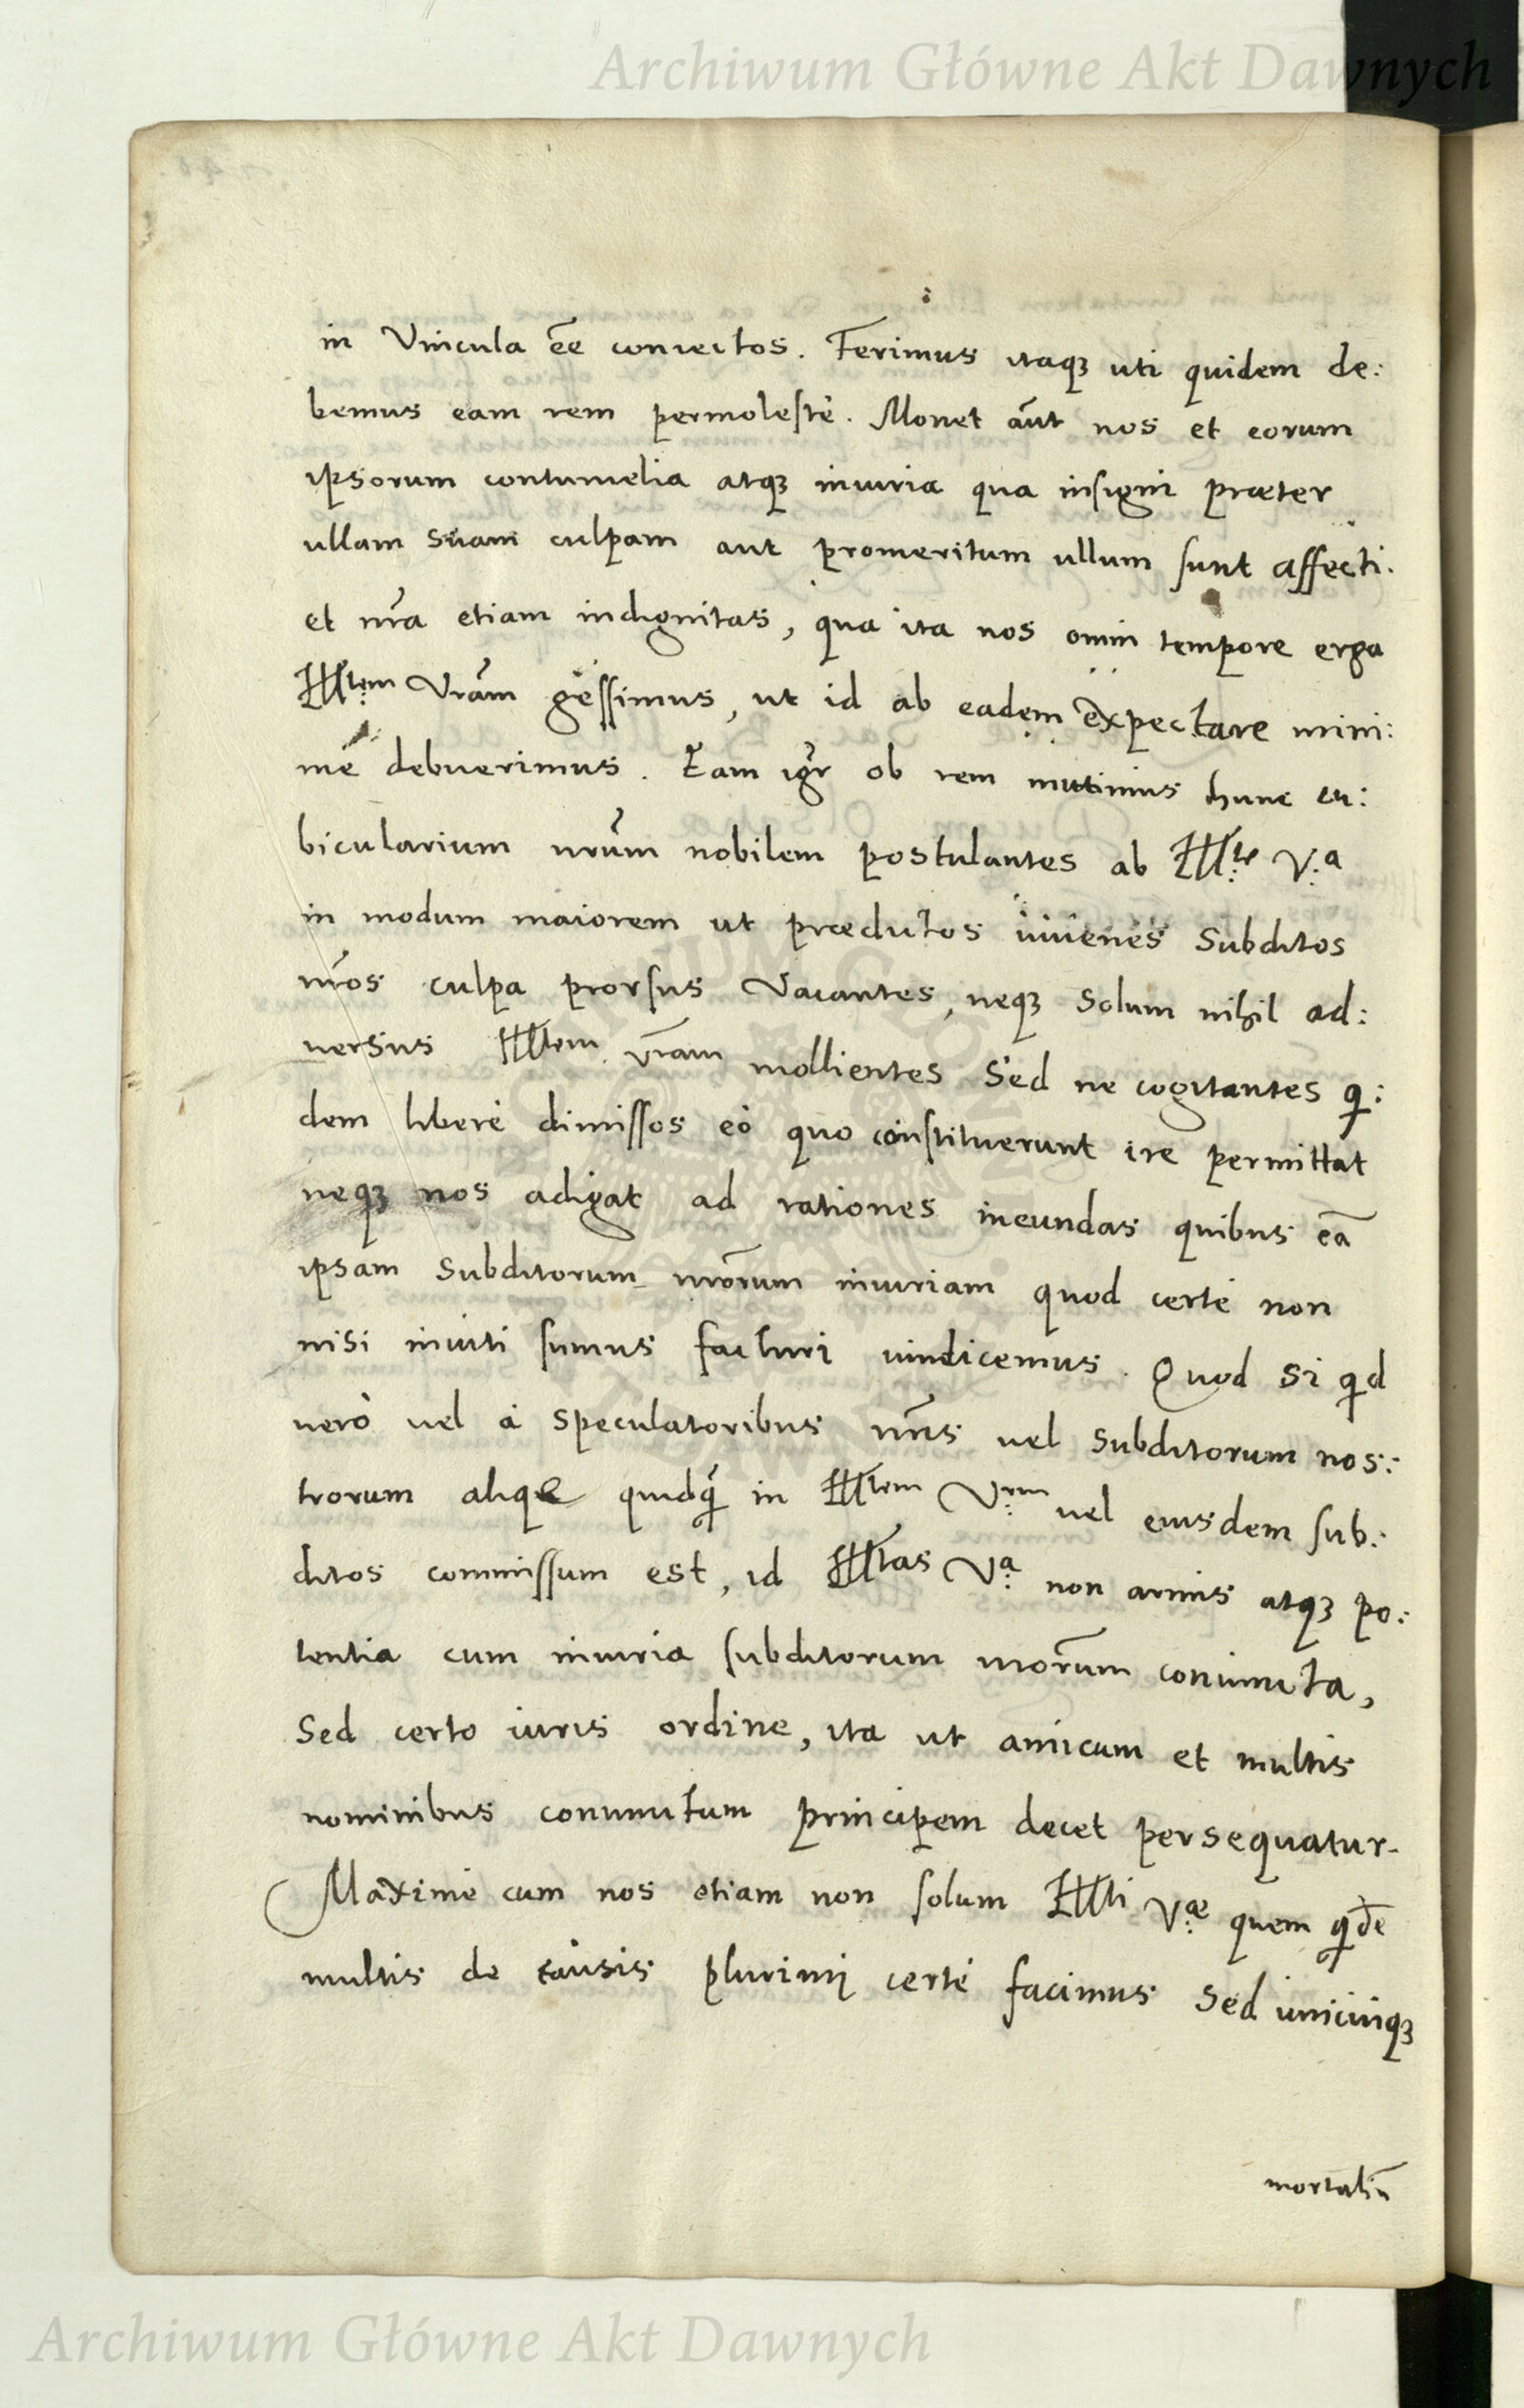 Archiwum Główne Akt Dawnych
in Vincula ēe coniectos. Ferimus itaqꝫ uti quidem de:
bemus eam rem permolestè. Monet aūt nos et eorum
ipsorum contumelia atqꝫ iniuria qua insigni præter
ullam suam culpam aut promeritum ullum sunt affecti.
et nr̄a etiam indignitas, qua ita nos omni tempore erga
Illtem Vrām gessimus, ut id ab eadem expectare mini:
mè debuerimus. Eam igr̄ ob rem mittimus hunc cu:
bicularium nrūm nobilem postulantes ab Illte V:a
in modum maiorem ut prædictos iuuenes subditos
nr̄os culpa prorsus vacantes, neqꝫ solum nihil ad:
uersus Illtem vram mollientes sed ne cogitantes q:
dem liberè dimissos eò quo constituerunt ire permittat
neqꝫ nos adigat ad rationes ineundas quibus eā
ipsam subditorum nrōrum iniuriam quod certè non
nisi inuiti sumus facturi uindicemus. Quod si qd
uerò uel à speculatoribus nr̄is uel subditorum nos:
trorum aliqe quidq̄ in Illtem V:rm uel eiusdem sub:
ditos commissum est, id Illtas V:a non armis atqꝫ po:
tentia cum iniuria subditorum nrōrum coniuncta,
sed certo iuris ordine, ita ut amicum et multis
nominibus coniunctum principem decet persequatur.
Maximè cum nos etiam non solum Illti V:æ quem qdē
multis de causis plurimi certè facimus sed unicuiqꝫ
mortaliū
Archiwum Główne Akt Dawnych